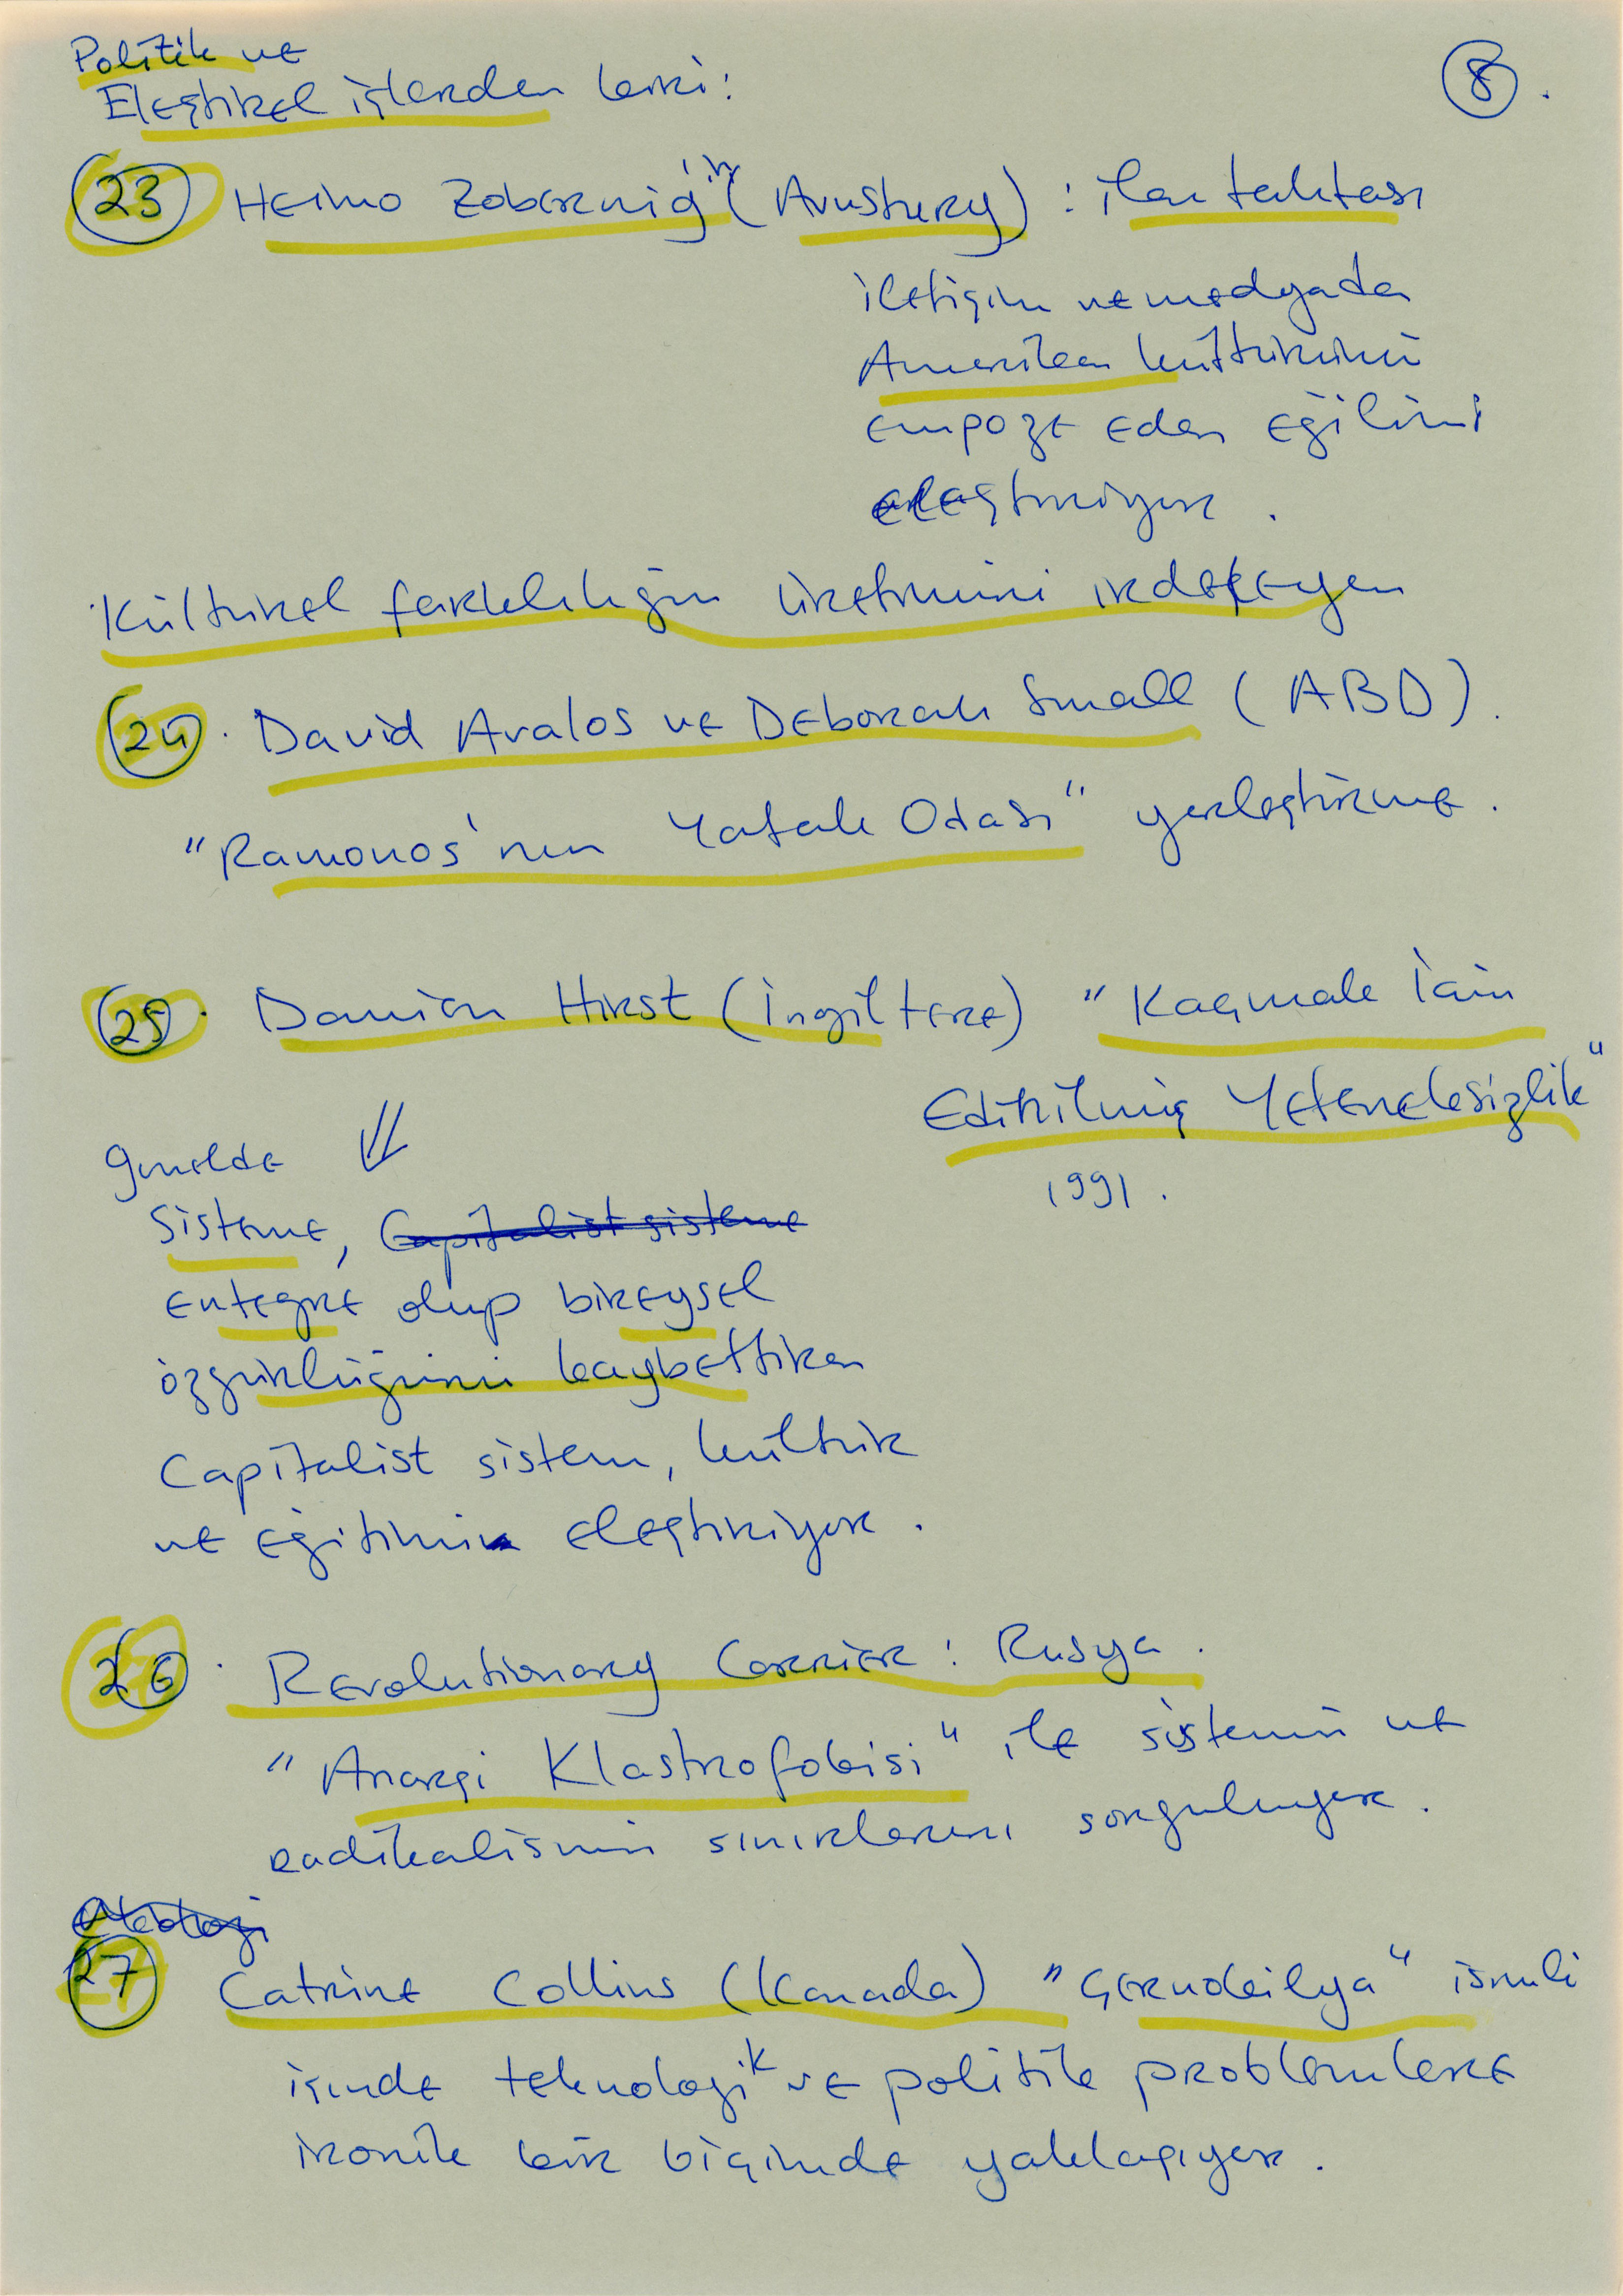 Politik ve
Eleştirel işlerden biri:
8.
23 Heimo Zobernig'in (Avusturya) : ilan tahtası
iletişim ve medyada
Amerikan kültürünü
empoze eden eğilimi
eleştiriyor.
Kültürel farklılığın üretimini irdeleyen
24. David Avalos ve Deborah Small (ABD).
"Ramonos'nın Yatak Odası" yerleştirme.
25. Damien Hirst (İngiltere) "Kaçmak İçin
Edinilmiş Yeteneksizlik"
1991.
genelde
Sisteme, Capitalist sisteme
entegre olup bireysel
özgürlüğünü kaybettiren
Capitalist sistem, kültür
ve eğitimi eleştiriyor.
26. Revolutionary Carrier : Rusya.
"Anarşi Klastrofobisi" ile sistemin ve
radikalismin sınırlarını sorguluyor.
27 Catrine Collins (Kanada) "Çernobilya" isimli
işinde teknolojik ve politik problemlere
ironik bir biçimde yaklaşıyor.